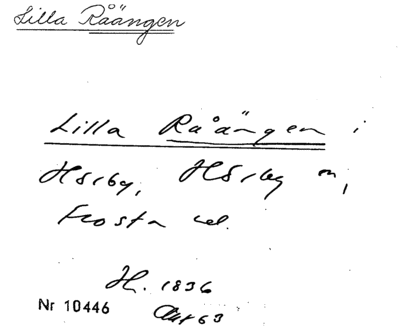 Lilla Råängen
Lilla Råängen i
Hörby, Hörby sn,
Frosta hd.
H. 1836
Nr 10446 Akt 63